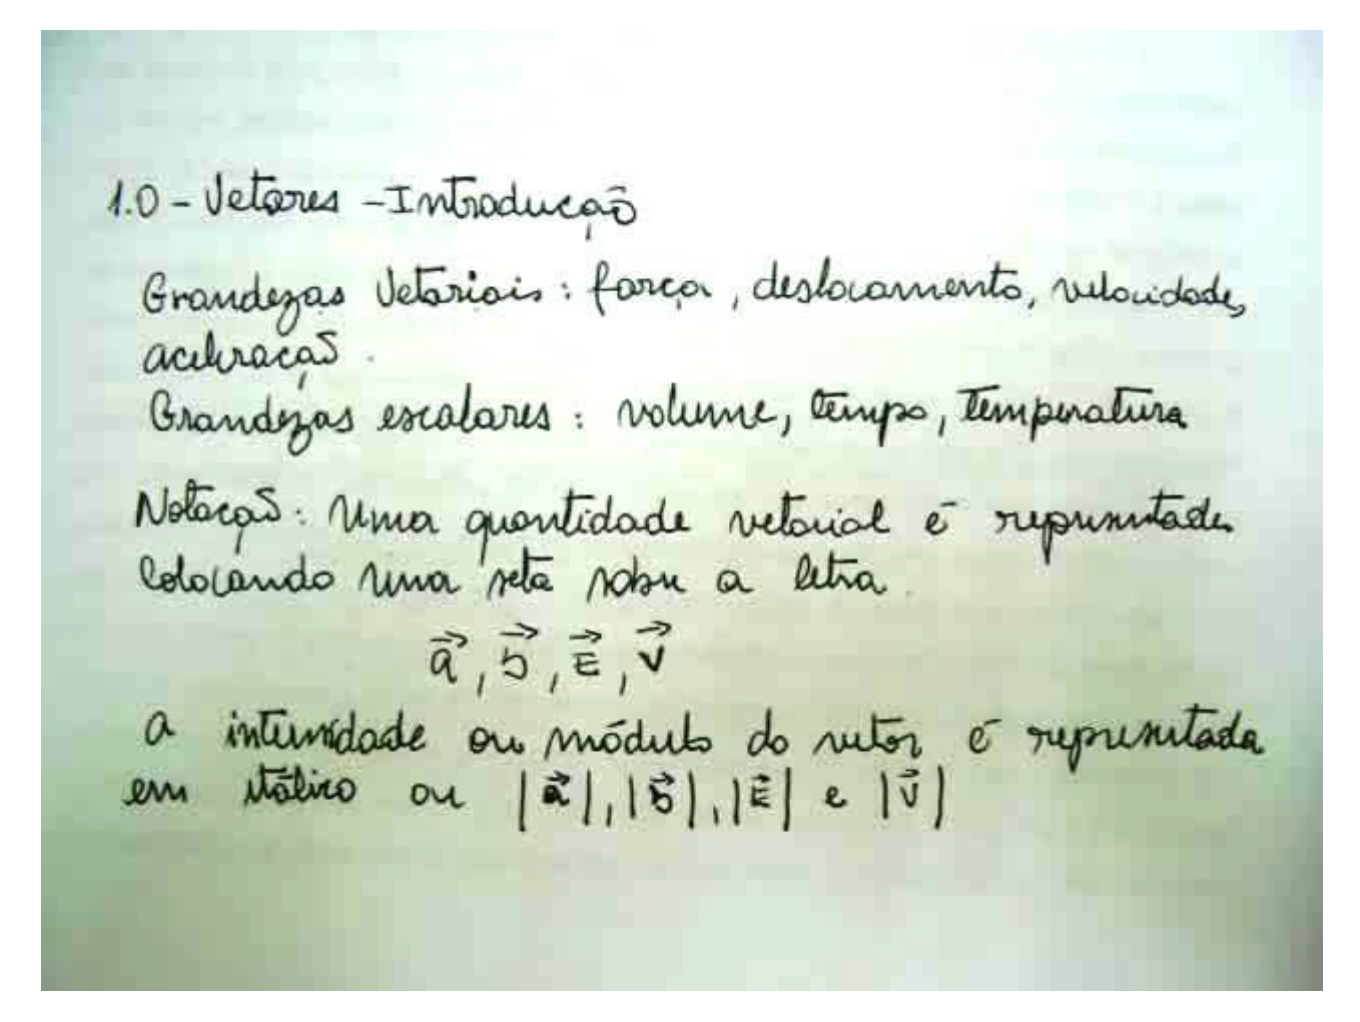 1.0 - Vetores - Introdução
Grandezas Vetoriais: força, deslocamento, velocidade,
aceleração.
Grandezas escalares: volume, tempo, temperatura
Notação: Uma quantidade vetorial é representada
colocando uma seta sobre a letra.
a⃗, b⃗, E⃗, v⃗
a intensidade ou módulo do vetor é representada
em itálico ou |a⃗|, |b⃗|, |E⃗| e |v⃗|